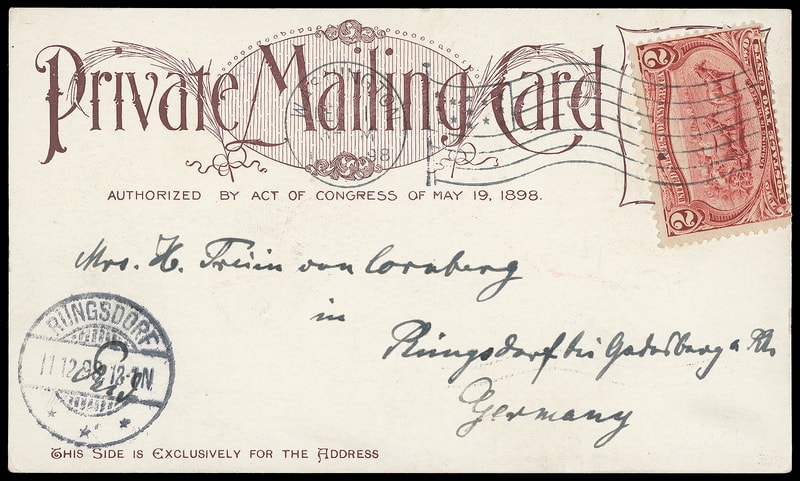 Private Mailing Card
WASHINGTON
98
2
2
AUTHORIZED BY ACT OF CONGRESS OF MAY 19, 1898.
Mrs. H. Freiin von Cornberg
in
Rüngsdorf bei Godesberg a Rh
Germany
RÜNGSDORF
11 12 98 12-1N
THIS SIDE IS EXCLUSIVELY FOR THE ADDRESS